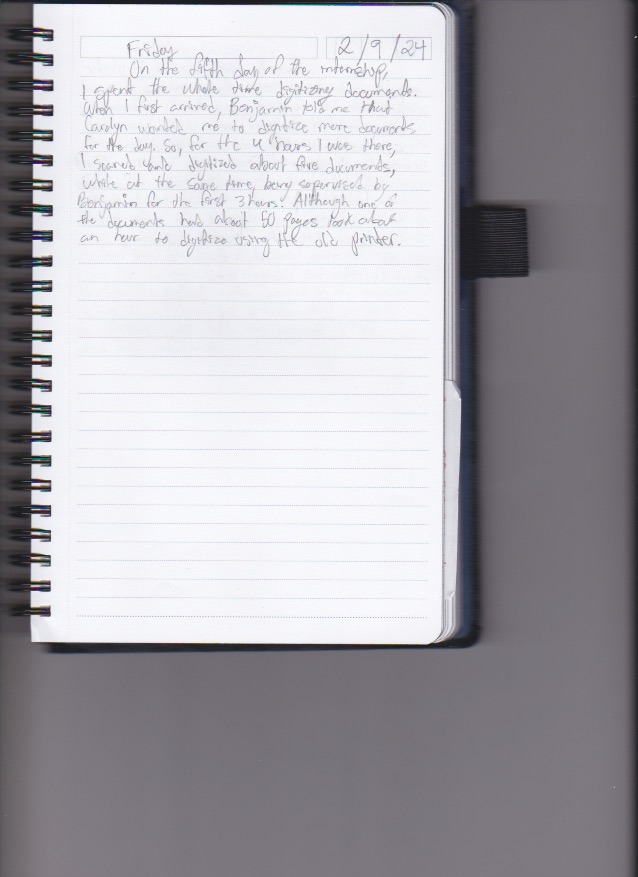 Friday 2/9/24
On the fifth day of the internship,
I spent the whole time digitizing documents.
When I first arrived, Benjamin told me that
Carolyn wanted me to digitize more documents
for the day. So, for the 4 hours I was there,
I scaned and digitized about five documents,
while at the same time, being supervised by
Benjamin for the first 3 hours. Although one of
the documents had about 50 pages took about
an hour to digitize using the old printer.